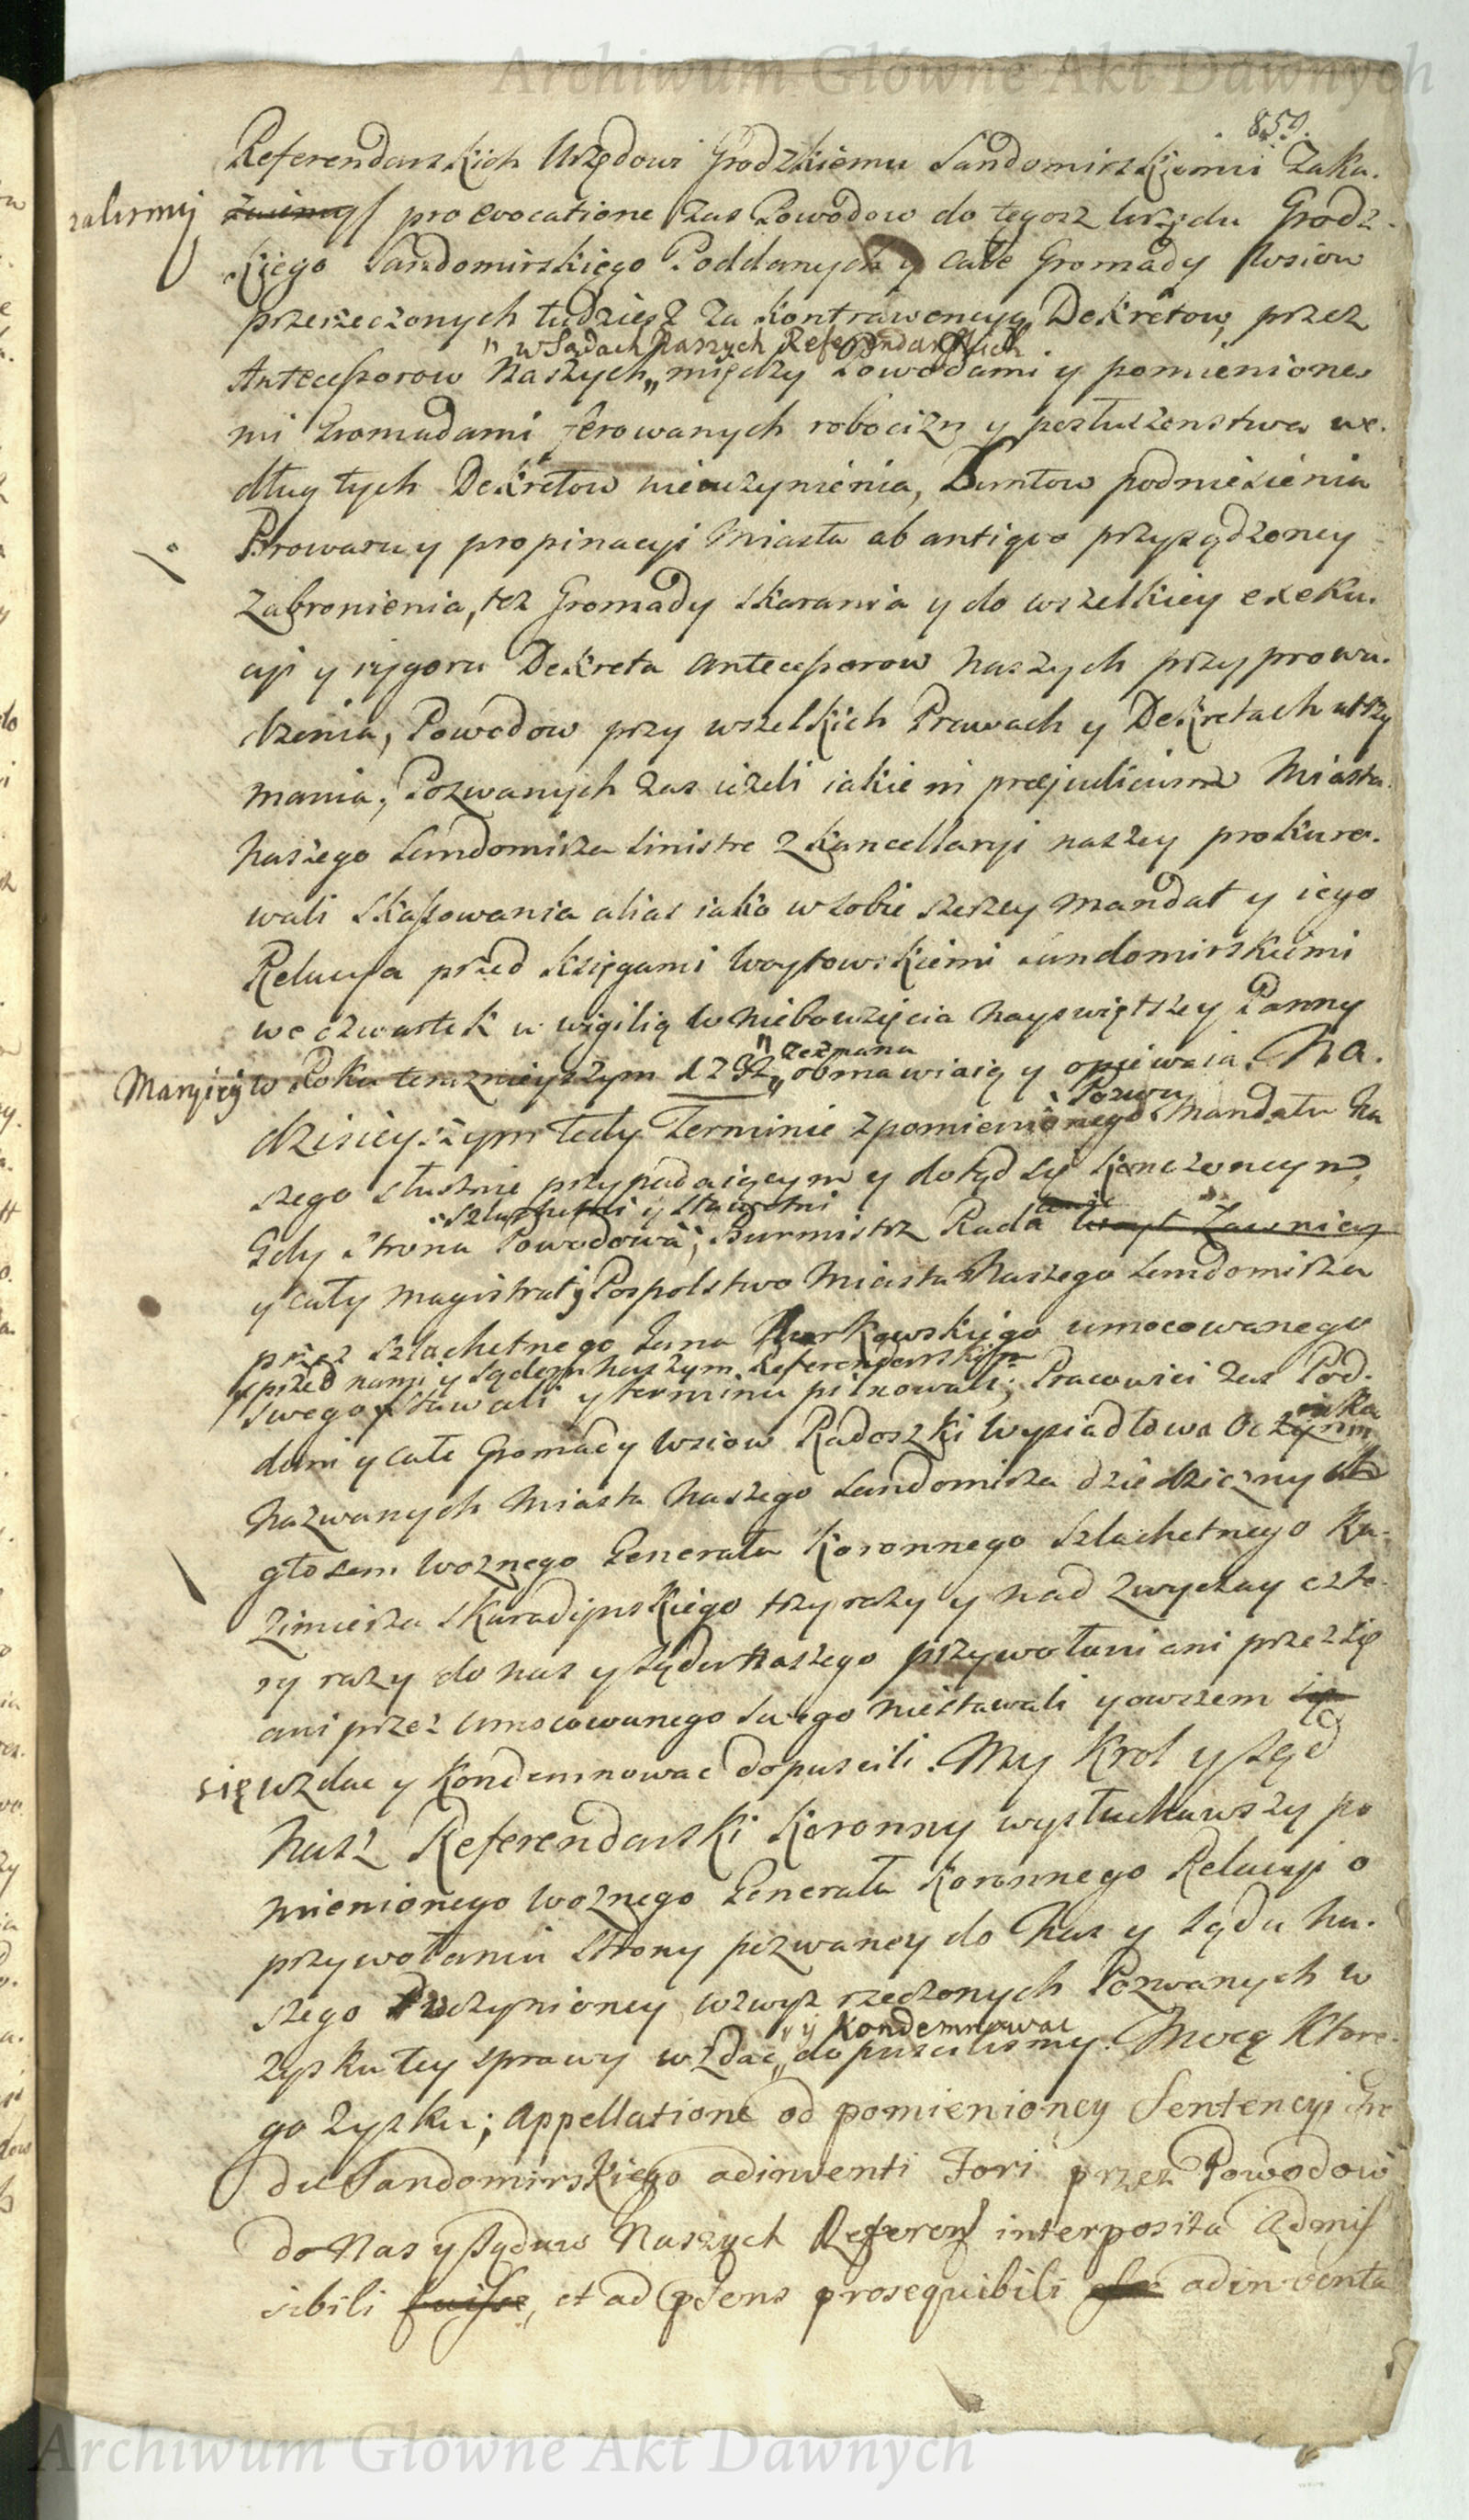 Archiwum Główne Akt Dawnych
859.
Referendarskich Urzędowi Grodzkiemu Sandomirskiemu Zaka-
zalismy pro evocatione zas Powodow do tegosz Urzędu Grodz-
kiego Sandomirskiego Poddanych y całe Gromady Wsiow
przerzeczonych tudziesz za kontrawencyą Dekretow, przez
„ w Sądach Naszych Referendarskich
Antecessorow Naszych „ między Powodami y pomienione-
mi Gromadami ferowanych robocizn y posłuszenstwa we-
dług tych Dekretow nieuczynienia, Buntow podniesienia
Browaru y propinacyi Miasta ab antiquo przysądzoney
zabronienia, tez Gromady skarania y do wszelkiey exeku-
cyi y rygoru Dekreta Antecessorow Naszych przyprowa-
dzenia, Powodow przy wszelkich Prawach y Dekretach utrzy
mania, Pozwanych zas ieżeli iakie in praejudicium Miasta
Naszego Sendomirza sinistre z Kancellaryi naszey prokuro-
wali skassowania alias iako w sobie szerzey Mandat y iego
Relacya przed Księgami Woytowskiemi Sandomirskiemi
we czwartek w wigilią Wniebowzięcia Nayswiętszey Panny
„ zeznana
Maryiey w Roku teraznieyszym 1792 „ obmawiaią y opiewaią. Na-
Pozwu
dzisieyszym tedy Terminie z pomienionego Mandatu Na
szego słusznie przypadaiącym y dotąd się kończoncym,
Szlachetni y Sławetni
Gdy Strona Powodowa, Burmistrz Rada Woyt Ławnicy
y cały Magistrat y Pospolstwo Miasta Naszego Sendomirza
przez Szlachetnego Jana Markowskiego umocowanego
przed nami y Sądem naszym Referendarskim
swego stawali y terminu pilnowali; Pracowici zas Pod-
dani y całe Gromady Wsiow Radoszki Wysiadłowa Oczyn
nka
Nazwanych Miasta Naszego Sandomirza dziedzicznych
głosem Woznego Generała Koronnego Szlachetnego Ka-
zimierza Skaradynskiego trzy razy y nad zwyczay czte-
ry razy do nas y Sądu Naszego przywołani ani przez się
ani przez Umocowanego swego niestawali y owszem się
się wzdac y Kondemnowac dopuscili. My Krol y Sąd
Nasz Referendarski Koronny wysłuchawszy po
mienionego Woznego Generała Koronnego Relacyi o
przywołaniu Strony pozwaney do Nas y Sądu Na-
szego uczynioney, wzwyz rzeczonych Pozwanych w
„ y Kondemnowac
zysku tey sprawy wzdac „ dopuscilismy. Mocą Ktore-
go Zysku; Appellatione od pomienioney Sentencyi Gro
du Sandomirskiego adinventi Fori przez Powodow
do Nas y Sąduw Naszych Referen interposita Admis
sibili fuisse, et ad psens prosequibili esse adinventa
Archiwum Główne Akt Dawnych